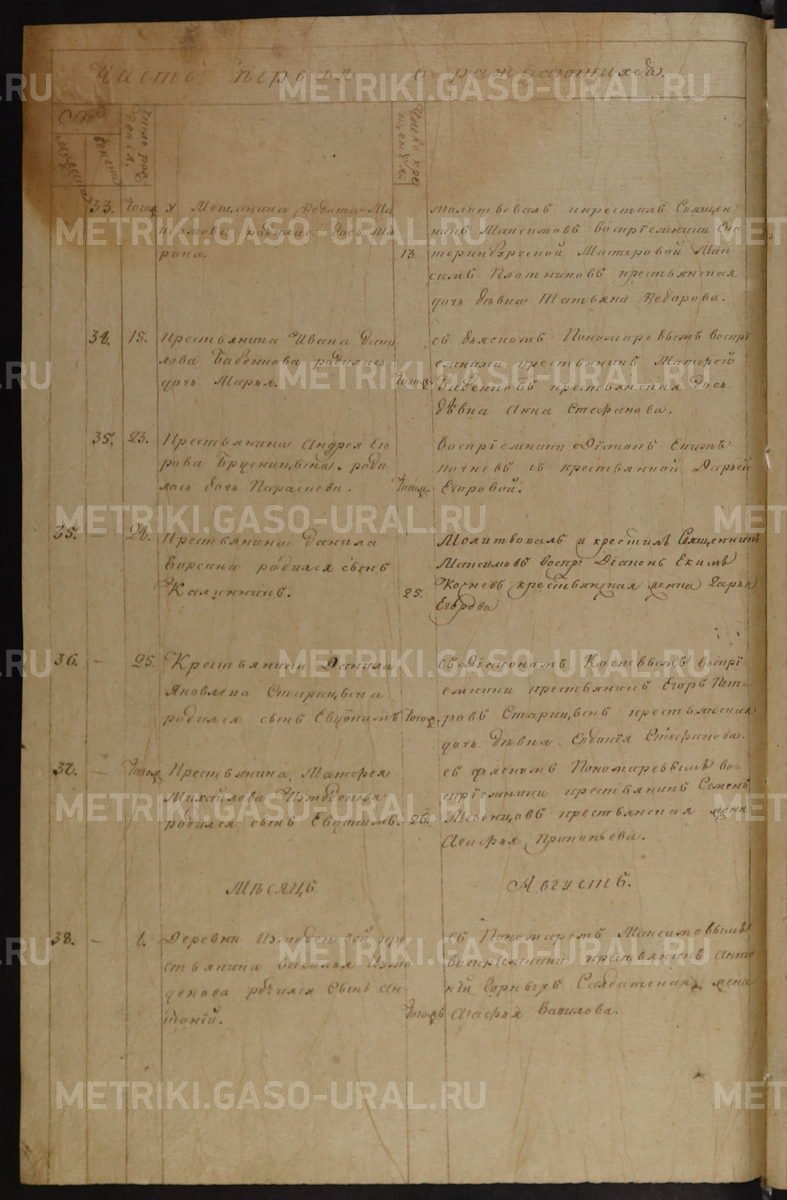 Часть первая о раждающихся.
№
мужеска
женска
Число рож
денія.
Число кре
щенія.
33.
Тогож
У Мещанина Федота Ма
ксимова родилась дочь Ма
рина.
13.
молитвовалъ и крестилъ Священ
никъ Максимовъ воспріемники Ека
теринбургской Мастеровой Мак
симъ Плотниковъ крестьянская
дочь дѣвка Татьяна Федорова.
34.
15.
Крестьянина Ивана Дани
лова Бабентова родилась
дочь Марья.
Тогож
съ дьякомъ Пономаревымъ воспрі
емники крестьянинъ Матфей
Бабентовъ крестьянская дочь
дѣвка Анна Стефанова.
35.
23.
Крестьянина Андрея Его
рова Брусницына роди
лась дочь Параскева.
Тогож
воспріемники Діяконъ Екимъ
съ крестьянкой Дарьей
Егоровой.
35.
—
24.
Крестьянина Данила
родился сынъ
Каллиникъ.
25.
Молитвовалъ и крестилъ Священникъ
Максимовъ воспрі Діяконъ Екимъ
Косневъ крестьянская жена Дарья
Егорова
36.
—
25.
Крестьянина Данила
Яковлева Старицына
родился сынъ Евфимъ
Тогож
Съ Діакономъ Косневымъ воспрі
емники крестьянинъ Егоръ Пет
ровъ Старицынъ крестьянская
дочь дѣвка Стефанова.
37.
—
Тогож
Крестьянина Матфея
Михайлова Изможденова
родился сынъ Евфимъ.
26.
съ дьякомъ Пономаревымъ во
спріемники крестьянинъ Семенъ
Мезенцовъ крестьянская жена
Агафья Прокопьева.
Мѣсяцъ
Августъ.
38.
—
1.
Деревни кре
стьянина Савелья Измо
денова родился сынъ Ан
тоній.
Тогожъ
съ Пономаремъ Максимовымъ
воспріемники крестьянинъ Анто
ній жена
Агафья Вавилова.
METRIKI.GASO-URAL.RU